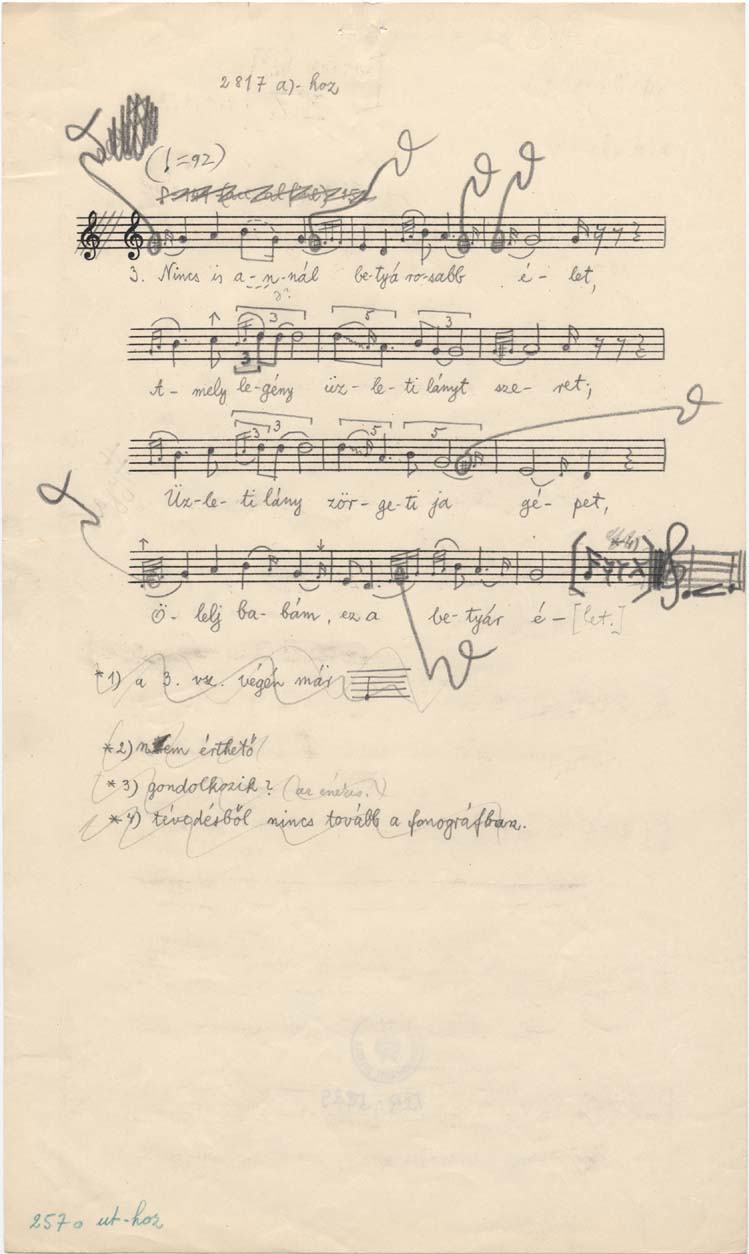 2817 a)-hoz
(♩=92)
3. Nincs is a-n-nál be-tyá-ro-sabb é - let,
3 5 3
3
A - mely le-gény üz-le-ti lányt sze-ret;
3 3 5 5
Üz-le-ti lány zör-ge-ti ja gé-pet,
*4)
Ö-lelj ba-bám, ez a be-tyár é-[let.]
*1) a 3. vsz. végén már
*2) nem érthető
*3) gondolkozik? (az énekes.)
*4) tévedésből nincs tovább a fonográfban.
257o ut-hoz